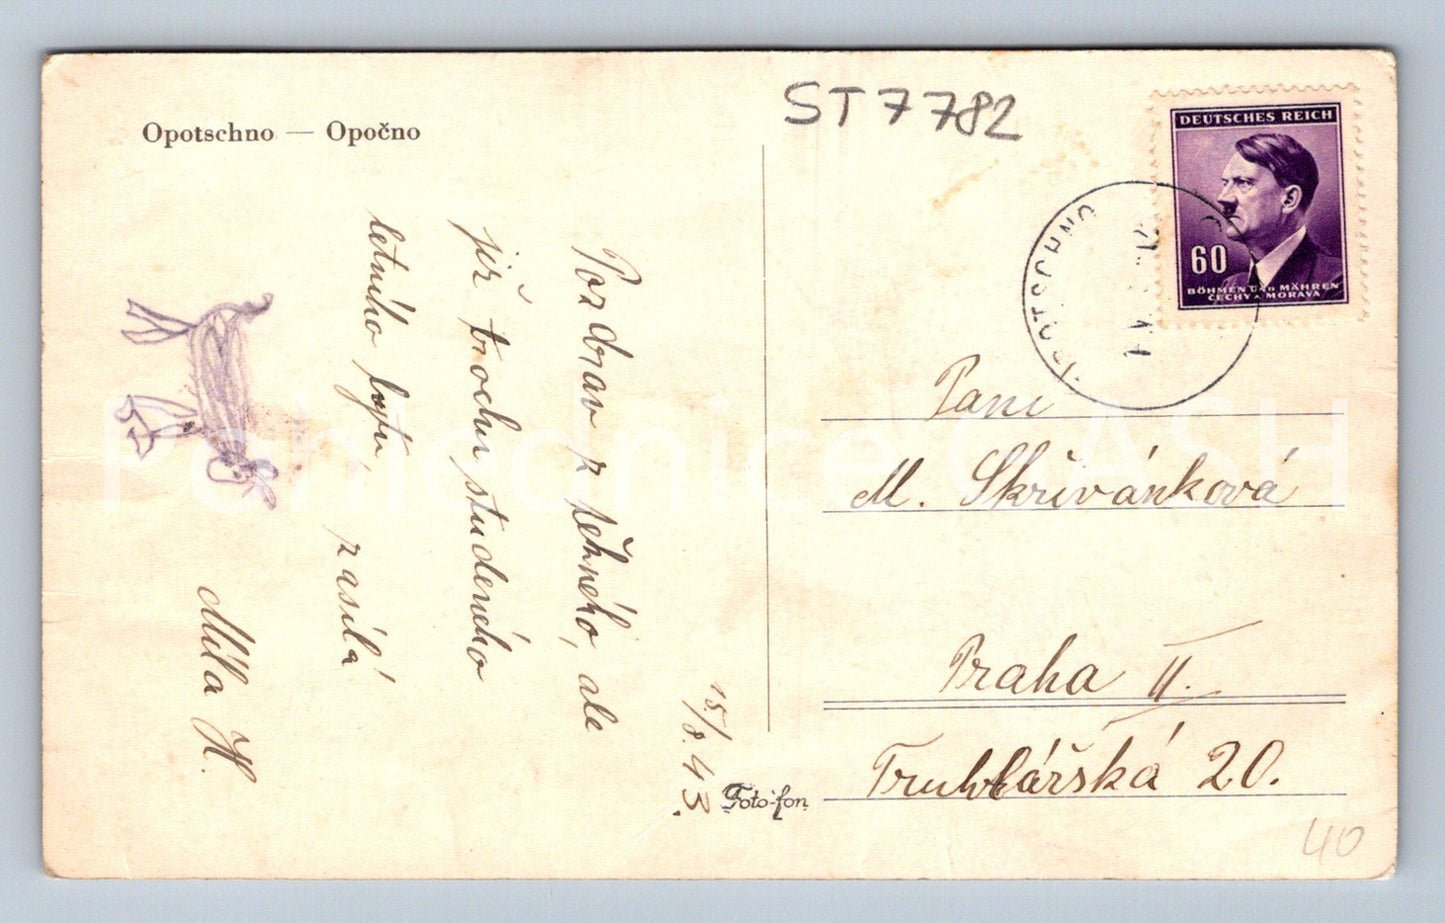 Opotschno — Opočno
ST 7782
DEUTSCHES REICH
60
BÖHMEN UND MÄHREN
ČECHY A MORAVA
OPOTSCHNO
15./8. 43.
Pozdrav z něhného, ale
již trochu studeného
letního bytu,
zasílá
Míla H.
Paní
M. Skřivánková
Praha II.
Truhlářská 20.
Foto-fon
40
Pohlednice CASH